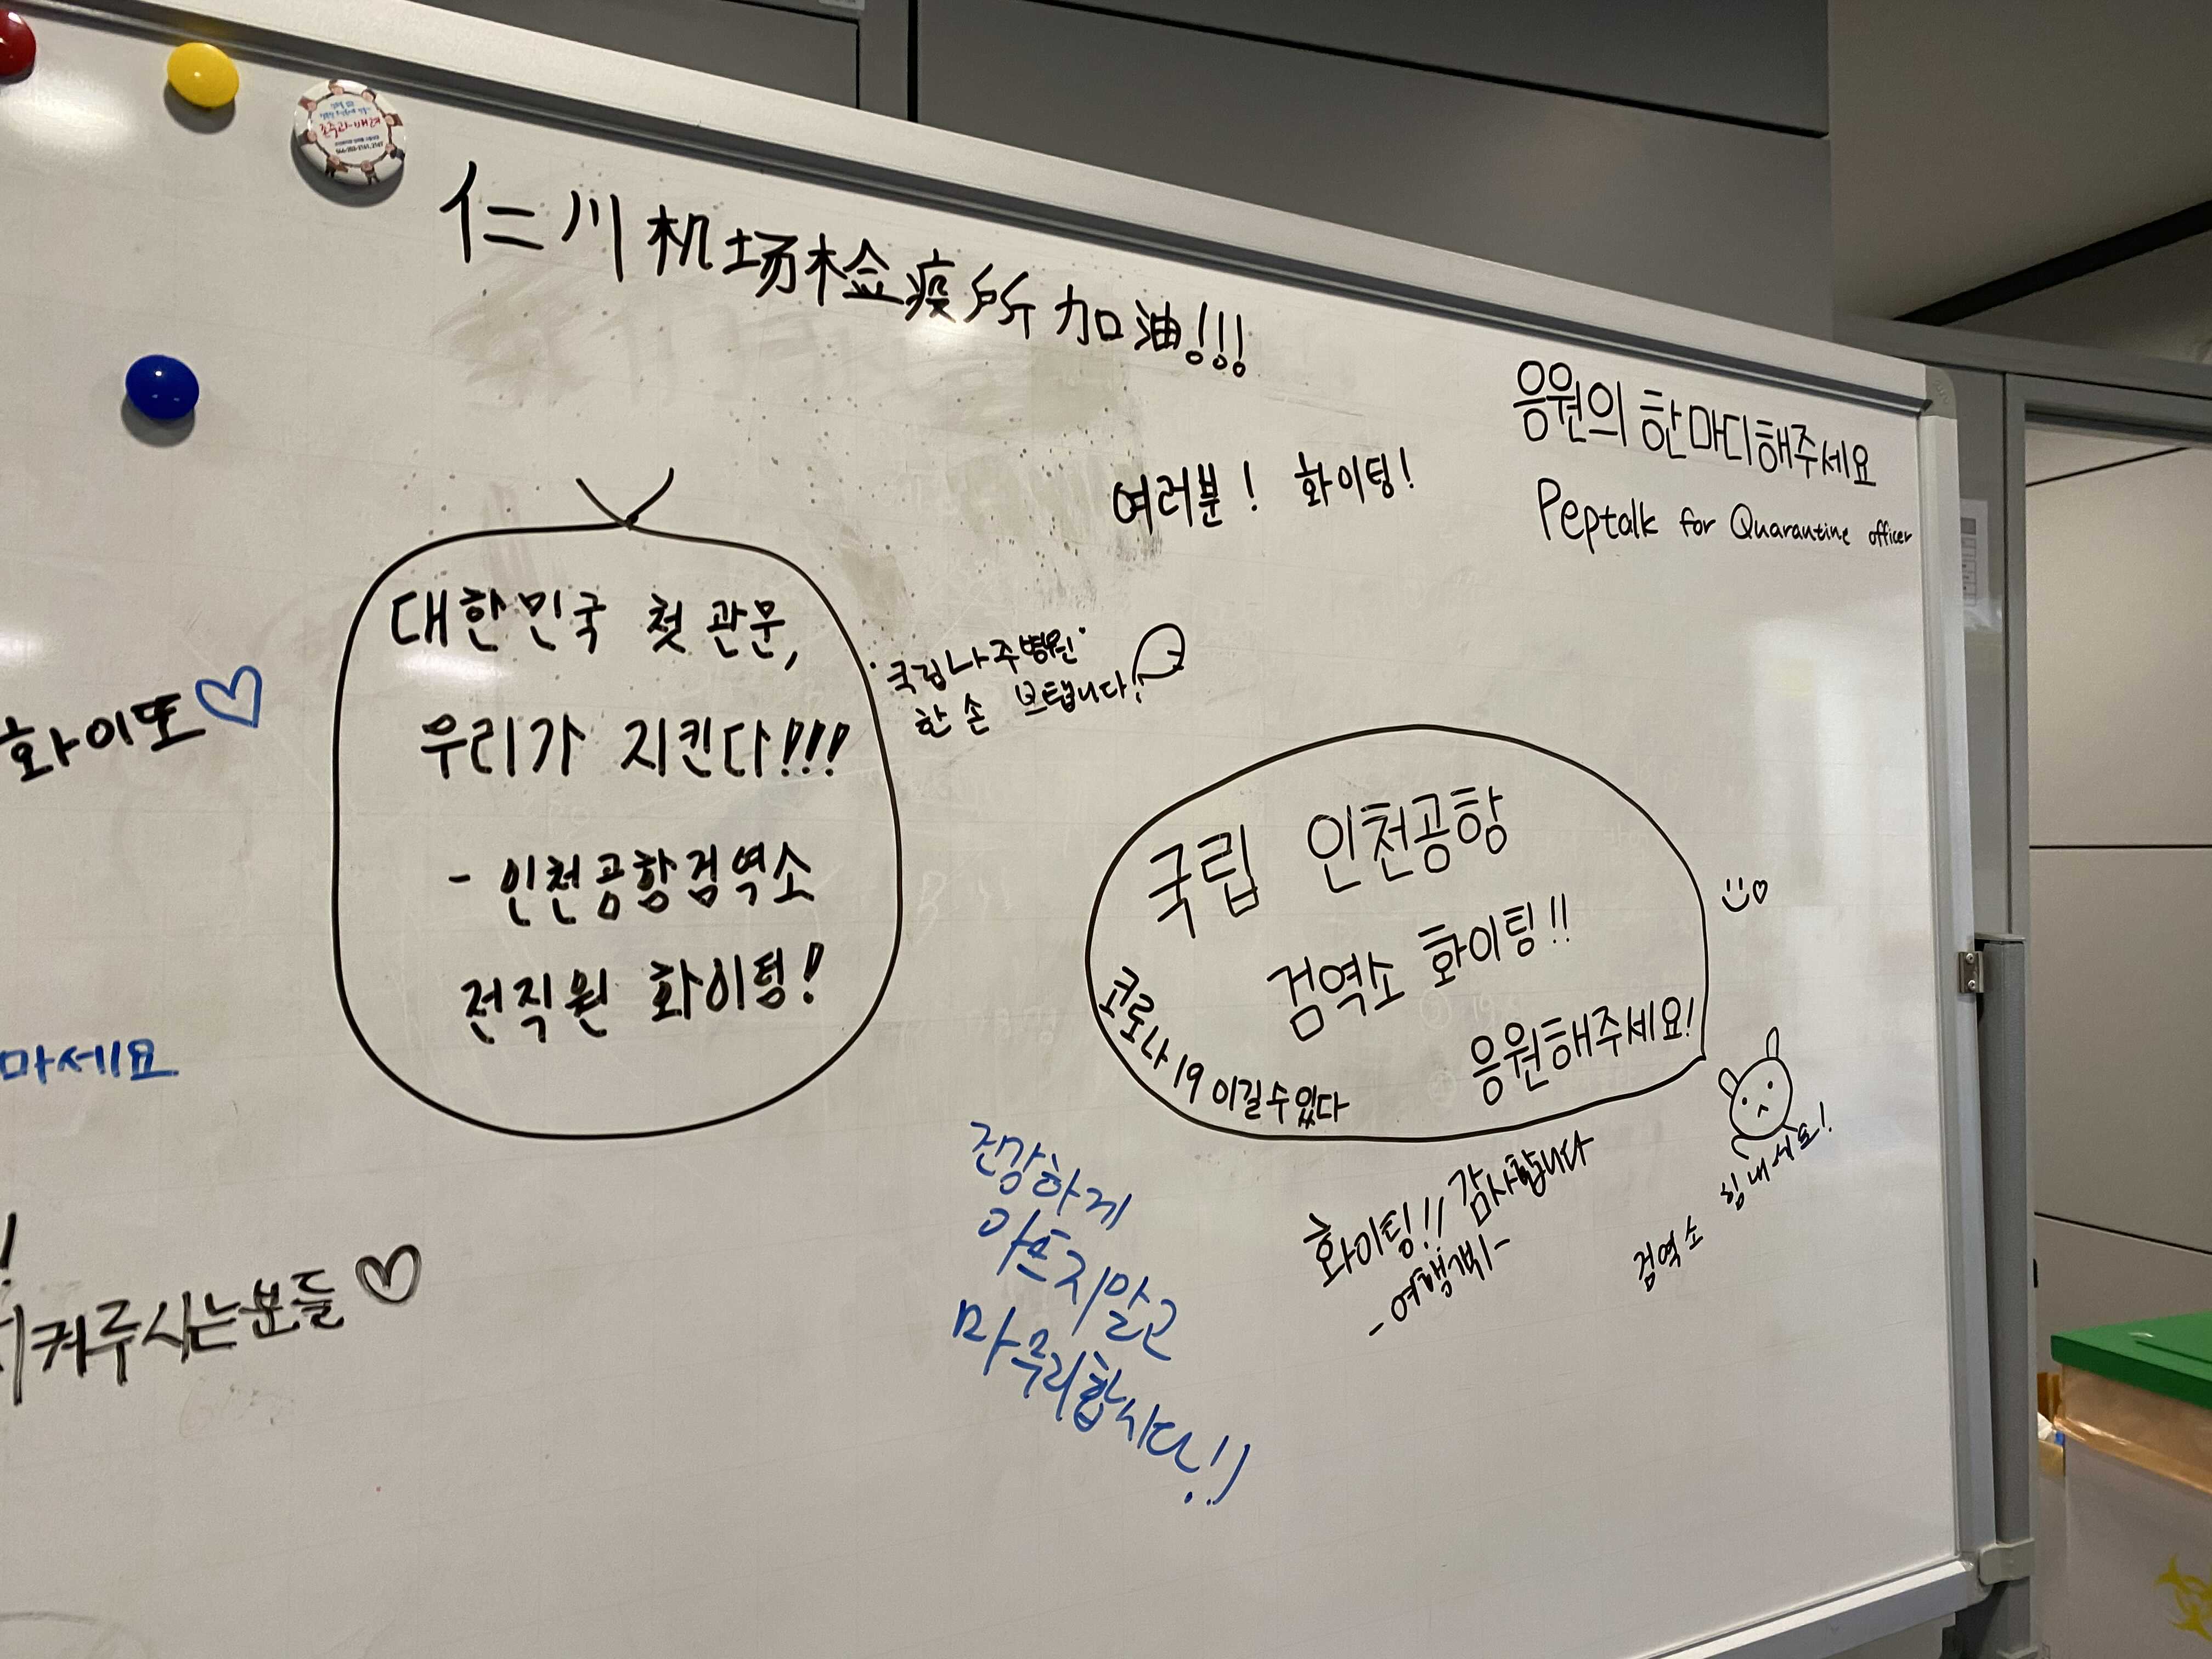 존중과 배려
仁川机场检疫所 加油!!!
응원의 한마디해주세요
Peptalk for Quarantine officer
여러분! 화이팅!
대한민국 첫 관문,
우리가 지킨다!!!
- 인천공항검역소
전직원 화이팅!
국립나주병원
한 손 보탭니다!
화이또♡
국립 인천공항
검역소 화이팅!!
응원해주세요!
코로나19 이길수있다
마세요
건강하게
아프지말고
마무리합시다!!
화이팅!! 감사합니다
검역소 힘내세요!
켜주시는분들♡